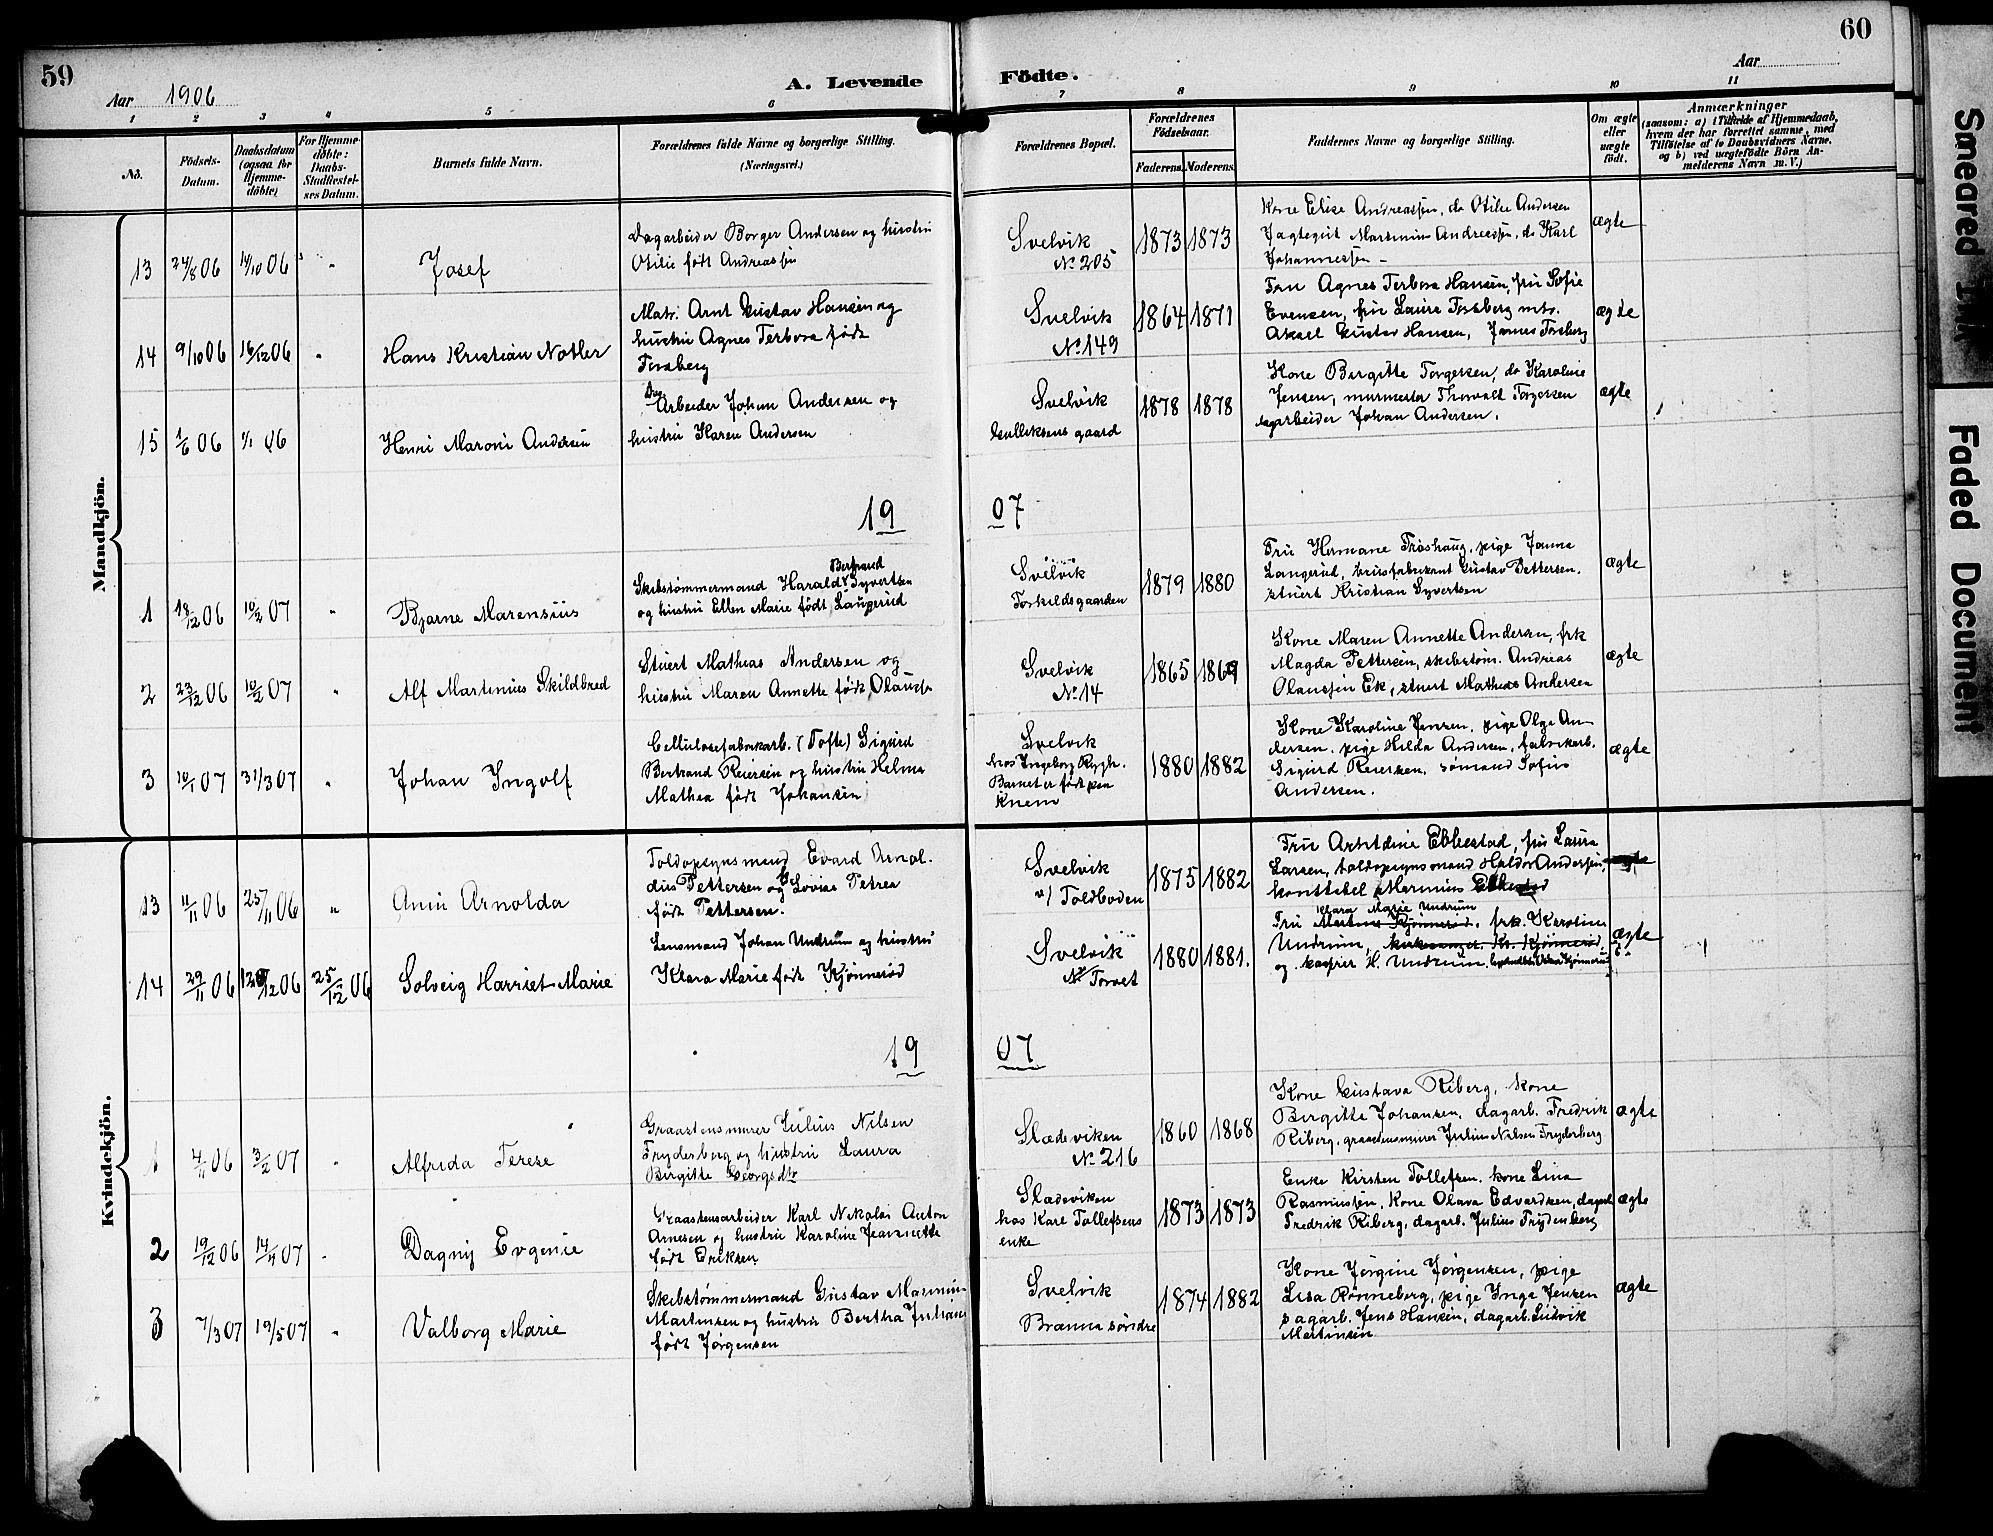 59
60
Aar 1906
A. Levende
Födte.
Aar
1 2 3 4 5 6 7 8 9 10 11
No.
Födsels-
Datum.
Daabsdatum
(ogsaa for
Hjemme-
döbte)
For Hjemme-
döbte:
Daabs-
Stadfæstel-
ses Datum.
Barnets fulde Navn.
Forældrenes fulde Navne og borgerlige Stilling.
(Næringsvei.)
Forældrenes Bopæl.
Forældrenes
Födselsaar.
Faderens. Moderens.
Faddernes Navne og borgerlige Stilling.
Om ægte
eller
uægte
født.
Anmærkninger
(saasom: a) i Tilfælde af Hjemmedaab,
hvem der har forrettet samme, med
Tilföielse af to Daabsvidners Navne,
og b) ved uægtefödte Börn An-
melderens Navn m. V.)
Mandkjön.
13 24/8 06 14/10 06 " Josef
Dagarbeider Borger Andersen og hustru
Otilie født Andreassen
Svelvik
No 205
1873 1873
Kone Elise Andreassen, do Otilie Andersen
Jagtegut Martinius Andreassen, do Karl
Johannessen -
ægte
14 9/10 06 16/12 06 " Hans Kristian Notler
Matr. Arnt Gustav Hansen og
hustru Agnes Terbora født
Forsberg
Svelvik
No 149
1864 1871
Fru Agnes Terbora Hansen, fru Sofie
Evensen, fru Laura Forsberg mtr.
Aksel Gustav Hansen, James Forsberg
ægte
15 1/6 06 1/1 06 Henri Maroni Andersen
Dag
Arbeider Johan Andersen og
hustru Karen Andersen
Svelvik
Gulliksens gaard
1878 1878
Kone Birgitte Torgersen, do Karoline
Jensen, murmester Thorvald Torgersen
dagarbeider Johan Andersen.
ægte
19 07
1 18/12 06 10/2 07 " Bjarne Marensius
Bertrand
Skibstømmermand Harald Syvertsen
og hustru Ellen Marie født Langerud
Svelvik
Torkildsgaarden
1879 1880
Fru Hermane Trøshaug, pige Janna
Langerud, brusfabrikant Gustav Pettersen,
stuert Kristian Syvertsen
ægte
2 23/12 06 10/2 07 " Alf Martinius Skildbred
Stuert Mathias Andersen og
hustru Maren Annette født Olaussen
Svelvik
No 14
1865 1869
Kone Maren Annette Andersen, frk
Magda Pettersen, skibstøm. Andreas
Olaussen Ek, stuert Mathias Andersen
ægte
3 10/1 07 31/3 07 " Johan Ingolf
Cellulosefabrikarb. (Tofte) Sigurd
Bertrand Reiersen og hustru Helma
Mathea født Johansen
Svelvik
hos Ingeborg Rygh.
Barnet er født paa
Knem
1880 1882
Kone Karoline Jensen, pige Olga An-
dersen, pige Hilda Andersen, fabrikarb.
Sigurd Reiersen, sømand Sofus
Andersen.
ægte
Kvindekjön.
13 11/11 06 25/11 06 " Anni Arnolda
Toldopsynsmand Evard Arnol-
dus Pettersen og Lovise Petrea
født Pettersen.
Svelvik
v/ Toldboden
1875 1882
Fru Arntdine Ebbestad, fru Laura
Larsen, toldopsynsmand Haldor Andersen,
konstabel Marinius Ebbestad
ægte
14 29/11 06 12/12 06 25/12 06 Solveig Harriet Marie
Lensmand Johan Undrum og hustru
Klara Marie født Kjønnerød
Svelvik
No Torvet
1880 1881.
Klara Marie Undrum
Fru Kjønnerød, frk. Karoline
Undrum, kirkesanger Kr. Kjønnerød,
og kasser H. Undrum,
ægte
19 07
1 4/11 06 3/2 07 " Alfrida Terese
Graastensmurer Julius Nilsen
Frydenberg og hustru Laura
Birgitte Georgsdtr
Sladeviken
No 216
1860 1868
Kone Gustava Riberg, kone
Birgitte Johansen, dagarb. Fredrik
Riberg, graastensmurer Julius Nilsen Frydenberg
ægte
2 19/12 06 14/4 07 " Dagny Evgenie
Graastensarbeider Karl Nikolai Anton
Arnesen og hustru Karoline Jeannette
født Eriksen
Sladeviken
hos Karl Tollefsens
enke
1873 1873
Enke Kirsten Tollefsen, kone Lina
Rasmussen, kone Olava Edvardsen, dagarb
Fredrik Riberg, dagarb. Julius Frydenberg
ægte
3 7/3 07 19/5 07 " Valborg Marie
Skibstømmermand Gustav Marinius
Martinsen og hustru Bertha Juliane
født Jørgensen
Svelvik
Brænna søndre
1874 1882
Kone Jørgine Jørgensen, pige
Lisa Rønneberg, pige Inga Jensen
dagarb. Jens Hansen, dagarb. Ludvik
Martinsen
ægte
Smeared Ink
Faded Document